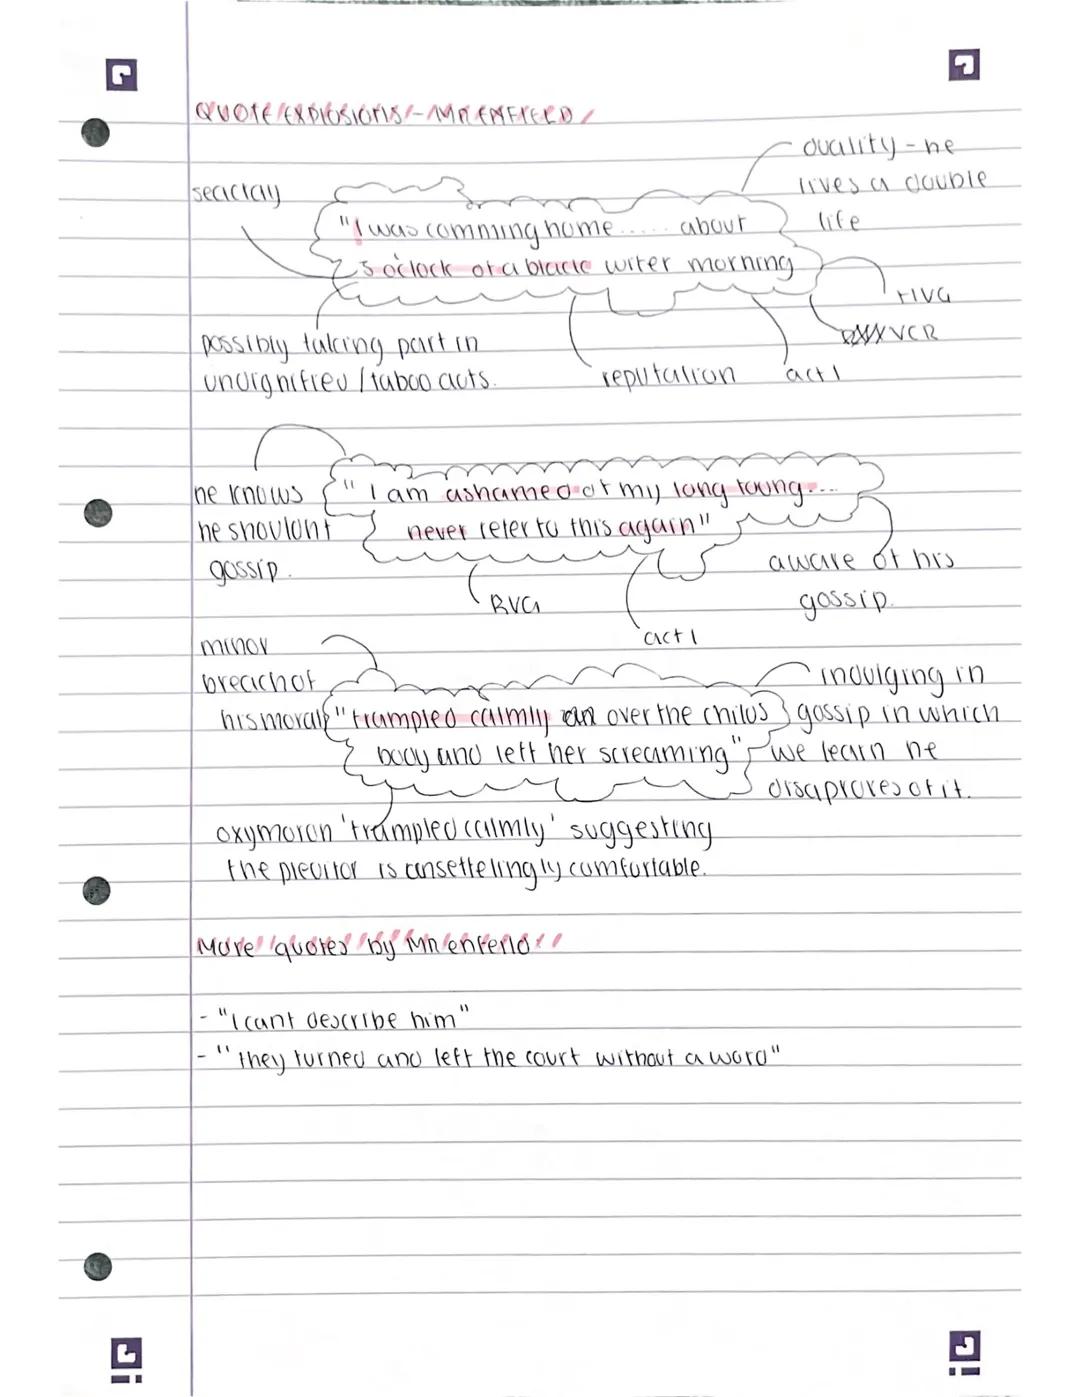 QUOTE EXPLOSIONS - MR ENFIELD
duality - he
lives a double
life
"I was comming home ..... about
3 o'clock of a black winter morning
HVG
VCR
possibly taking part in
undignified / taboo acts.
reputation
act 1
he knows
he shouldnt
gossip.
"I am ashamed of my long toung...
never refer to this again"
aware of his
gossip.
BVG
act 1
minor
breach of
his morals
"trampled calmly over the childs
body and left her screaming"
indulging in
gossip in which
we learn he
disaproves of it.
oxymoron 'trampled calmly' suggesting
the preditor is unsettelingly comfortable.
More quotes by Mr enfeild
- "I cant describe him"
- "they turned and left the court without a word"